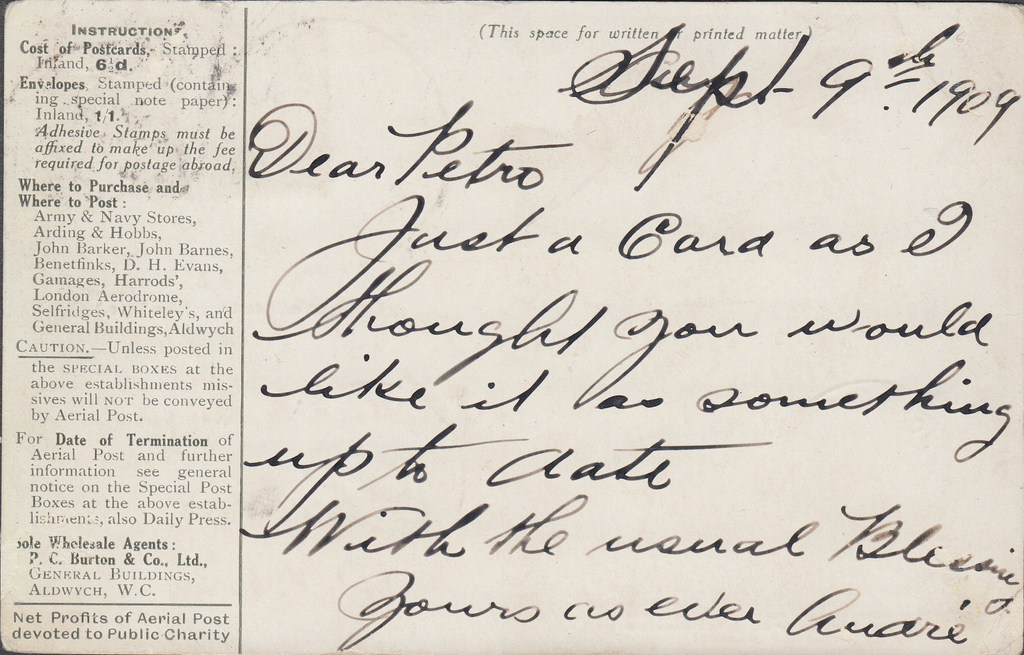 INSTRUCTIONS.
Cost of Postcards, Stamped:
Inland, 6½d.
Envelopes, Stamped (contain-
ing special note paper):
Inland, 1/1.
Adhesive Stamps must be
affixed to make up the fee
required for postage abroad.
Where to Purchase and
Where to Post:
Army & Navy Stores,
Arding & Hobbs,
John Barker, John Barnes,
Benetfinks, D. H. Evans,
Gamages, Harrods',
London Aerodrome,
Selfridges, Whiteley's, and
General Buildings, Aldwych
CAUTION.—Unless posted in
the SPECIAL BOXES at the
above establishments mis-
sives will NOT be conveyed
by Aerial Post.
For Date of Termination of
Aerial Post and further
information see general
notice on the Special Post
Boxes at the above estab-
lishments, also Daily Press.
Sole Wholesale Agents:
P. C. Burton & Co., Ltd.,
GENERAL BUILDINGS,
ALDWYCH, W.C.
Net Profits of Aerial Post
devoted to Public Charity
(This space for written or printed matter)
Sept 9th 1909
Dear Petro
Just a Card as I
thought you would
like it as something
up to date
With the usual Blessing
Yours as ever André